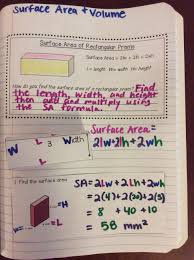 Surface Area + Volume
Surface Area of Rectangular Prisms
Surface Area = 2lw + 2lh + 2wh
l = length w = width h = height
How do you find the surface area of a rectangular prism? Find
the length, width, and height
then add and multiply using
the SA formula.
Surface Area=
W L 3 Width
2lw+2lh+2wh
H L
1. Find the surface area
SA=2LW+2Lh+2wh
=2(4)+2(20)+2(5)
= 8 +40 +10
= 58 mm²